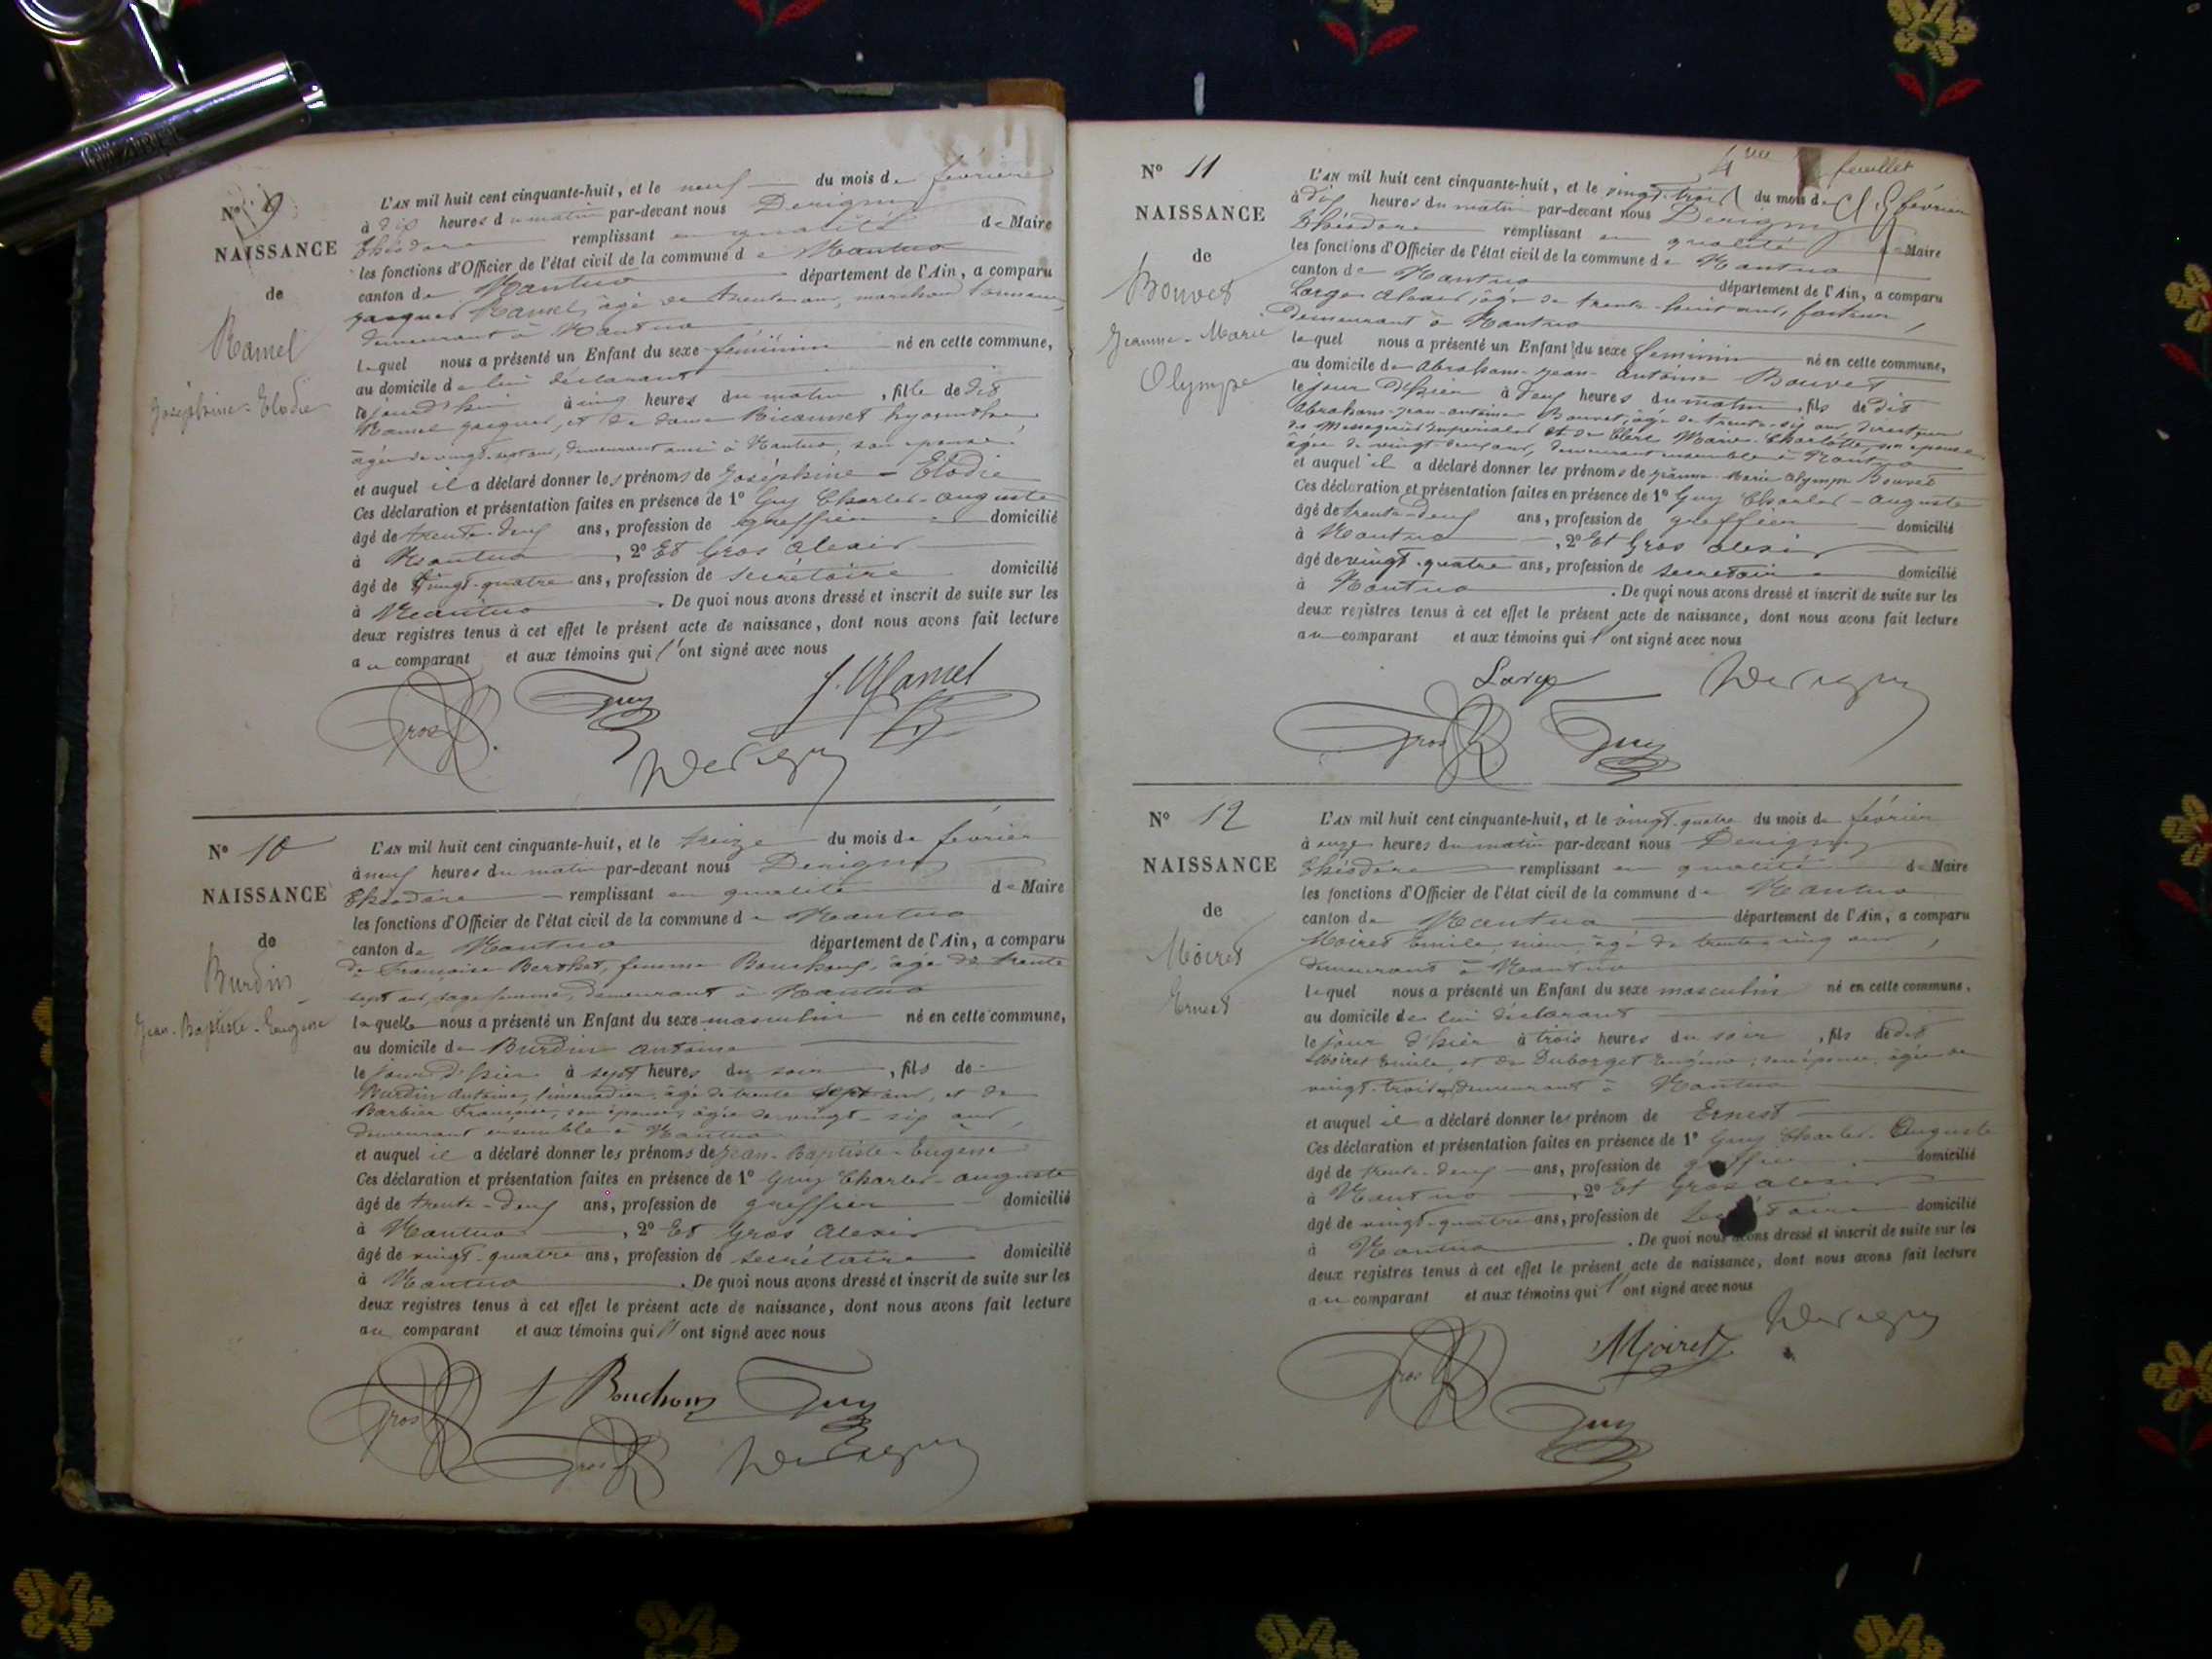 N° 9
NAISSANCE
de
Ramel
Joséphine-Elodie
L'AN mil huit cent cinquante-huit, et le neuf du mois de février
à dix heures du matin par-devant nous Derigny
Théodore remplissant en qualité de Maire
les fonctions d'Officier de l'état civil de la commune de Nantua
canton de Nantua département de l'Ain, a comparu
Jacques Ramel, âgé de trente ans, marchand
demeurant à Nantua
lequel nous a présenté un Enfant du sexe féminin né en cette commune,
au domicile de lui déclarant
le jourd'hui à cinq heures du matin, fille de dit
Ramel Jacques, et de dame
âgée de vingt-sept ans, demeurant aussi à Nantua, son épouse
et auquel il a déclaré donner les prénoms de Joséphine-Elodie
Ces déclaration et présentation faites en présence de 1° Guy Charles-Auguste
âgé de trente-deux ans, profession de greffier domicilié
à Nantua, 2° Et Gros Alexis
âgé de vingt-quatre ans, profession de secrétaire domicilié
à Nantua. De quoi nous avons dressé et inscrit de suite sur les
deux registres tenus à cet effet le présent acte de naissance, dont nous avons fait lecture
au comparant et aux témoins qui l'ont signé avec nous
J. Ramel
Gros Guy
Derigny
N° 10
NAISSANCE
de
Burdin
Jean-Baptiste-Eugène
L'AN mil huit cent cinquante-huit, et le seize du mois de février
à neuf heures du matin par-devant nous Derigny
Théodore remplissant en qualité de Maire
les fonctions d'Officier de l'état civil de la commune de Nantua
canton de Nantua département de l'Ain, a comparu
de Françoise Berthet, femme Bouchoux, âgé de trente
sept ans, sage femme, demeurant à Nantua
laquelle nous a présenté un Enfant du sexe masculin né en cette commune,
au domicile de Burdin Antoine
le jour d'hier à sept heures du soir, fils de
Burdin Antoine, limonadier, âgé de trente sept ans, et de
Barbier Françoise, son épouse, âgée de vingt-six ans,
demeurant ensemble à Nantua
et auquel il a déclaré donner les prénoms de Jean-Baptiste-Eugène
Ces déclaration et présentation faites en présence de 1° Guy Charles-Auguste
âgé de trente-deux ans, profession de greffier domicilié
à Nantua, 2° Et Gros Alexis
âgé de vingt-quatre ans, profession de secrétaire domicilié
à Nantua. De quoi nous avons dressé et inscrit de suite sur les
deux registres tenus à cet effet le présent acte de naissance, dont nous avons fait lecture
au comparant et aux témoins qui l'ont signé avec nous
Gros f Bouchoux Guy
Gros Derigny
4me feuillet
N° 11
NAISSANCE
de
Bouvet
Jeanne-Marie
Olympe
L'AN mil huit cent cinquante-huit, et le vingt-trois du mois de février
à dix heures du matin par-devant nous Derigny
Théodore remplissant en qualité de Maire
les fonctions d'Officier de l'état civil de la commune de Nantua
canton de Nantua département de l'Ain, a comparu
Large âgé de trente-huit ans, facteur,
demeurant à Nantua
lequel nous a présenté un Enfant du sexe féminin né en cette commune,
au domicile de Abraham-Jean-Antoine Bouvet
le jour d'hier à deux heures du matin, fils de dit
Abraham-Jean-Antoine Bouvet, âgé de trente-six ans, directeur
des Messageries Impériales et de Clerc Marie-Charlotte, son épouse
âgée de vingt-deux ans, demeurant ensemble à Nantua
et auquel il a déclaré donner les prénoms de Jeanne-Marie Olympe Bouvet
Ces déclaration et présentation faites en présence de 1° Guy Charles-Auguste
âgé de trente-deux ans, profession de greffier domicilié
à Nantua, 2° Et Gros Alexis
âgé de vingt-quatre ans, profession de secrétaire domicilié
à Nantua. De quoi nous avons dressé et inscrit de suite sur les
deux registres tenus à cet effet le présent acte de naissance, dont nous avons fait lecture
au comparant et aux témoins qui l'ont signé avec nous
Large Derigny
Gros Guy
N° 12
NAISSANCE
de
Moiret
Ernest
L'AN mil huit cent cinquante-huit, et le vingt-quatre du mois de février
à onze heures du matin par-devant nous Derigny
Théodore remplissant en qualité de Maire
les fonctions d'Officier de l'état civil de la commune de Nantua
canton de Nantua département de l'Ain, a comparu
Moiret Emile, âgé de trente-cinq ans,
demeurant à Nantua
lequel nous a présenté un Enfant du sexe masculin né en cette commune,
au domicile de lui déclarant
le jour d'hier à trois heures du soir, fils de dit
Moiret Emile, et de Duborget Eugénie, son épouse, âgée de
vingt-trois demeurant à Nantua
et auquel il a déclaré donner les prénom de Ernest
Ces déclaration et présentation faites en présence de 1° Guy Charles-Auguste
âgé de trente-deux ans, profession de greffier domicilié
à Nantua, 2° Et Gros Alexis
âgé de vingt-quatre ans, profession de secrétaire domicilié
à Nantua. De quoi nous avons dressé et inscrit de suite sur les
deux registres tenus à cet effet le présent acte de naissance, dont nous avons fait lecture
au comparant et aux témoins qui l'ont signé avec nous
Gros Moiret Derigny
Guy